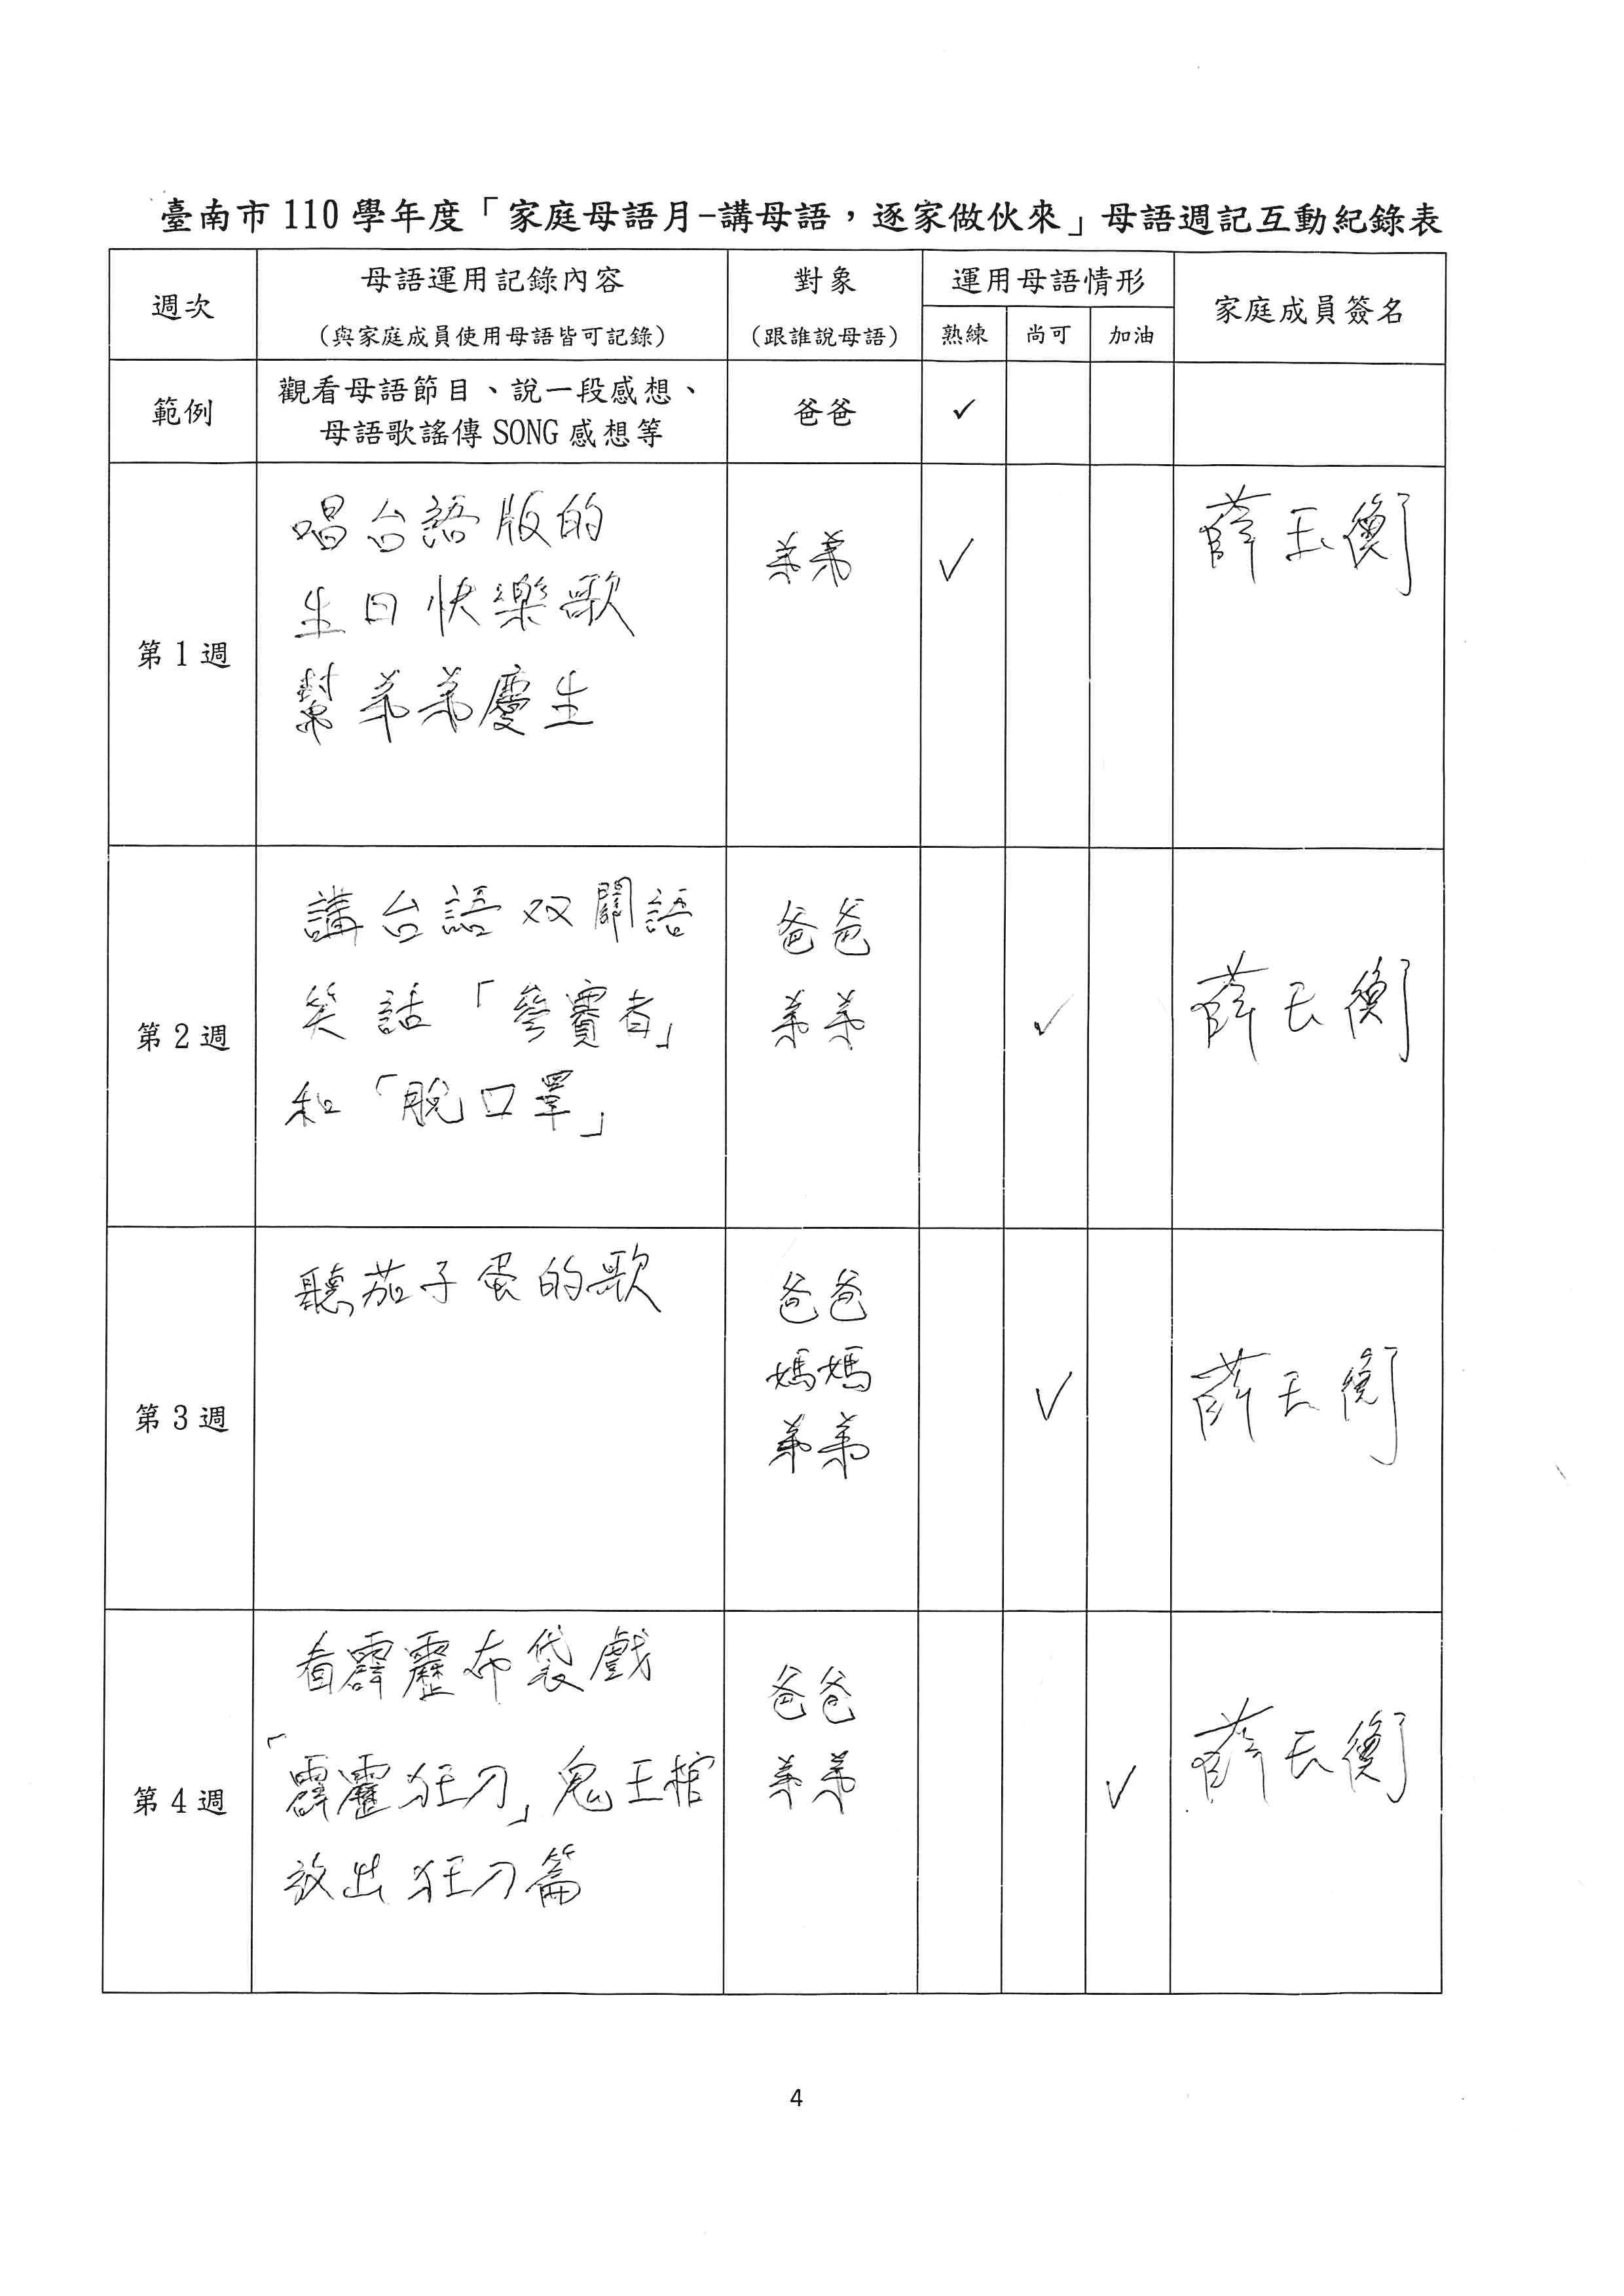 臺南市 110 學年度「家庭母語月-講母語,逐家做伙來」母語週記互動紀錄表
週次
母語運用記錄內容
(與家庭成員使用母語皆可記錄)
對象
(跟誰說母語)
運用母語情形
熟練 尚可 加油
家庭成員簽名
範例
觀看母語節目、說一段感想、
母語歌謠傳 SONG 感想等
爸爸
✓
第 1 週
唱台語版的
生日快樂歌
幫弟弟慶生
弟弟
✓
薛玉衡
第 2 週
講台語双關語
笑話「參賽者」
和「脫口罩」
爸爸
弟弟
✓
薛玉衡
第 3 週
聽茄子蛋的歌
爸爸
媽媽
弟弟
✓
薛玉衡
第 4 週
看霹靂布袋戲
「霹靂狂刀」鬼王棺
放出狂刀篇
爸爸
弟弟
✓
薛玉衡
4